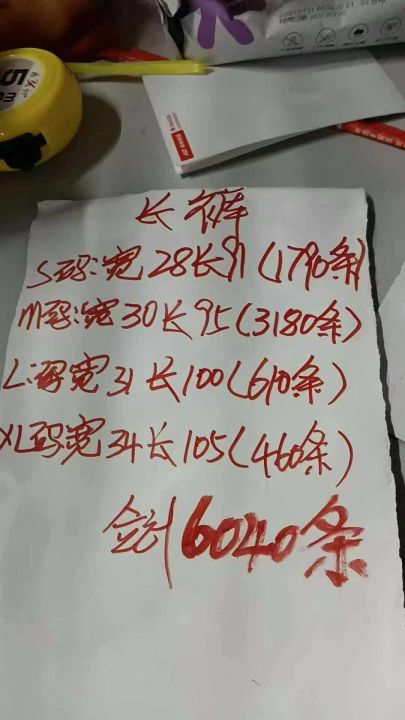 长裤
S码:宽28长91(1790条)
M码:宽30长95(3180条)
L:码宽31长100(610条)
XL码宽34长105(460条)
合计6040条